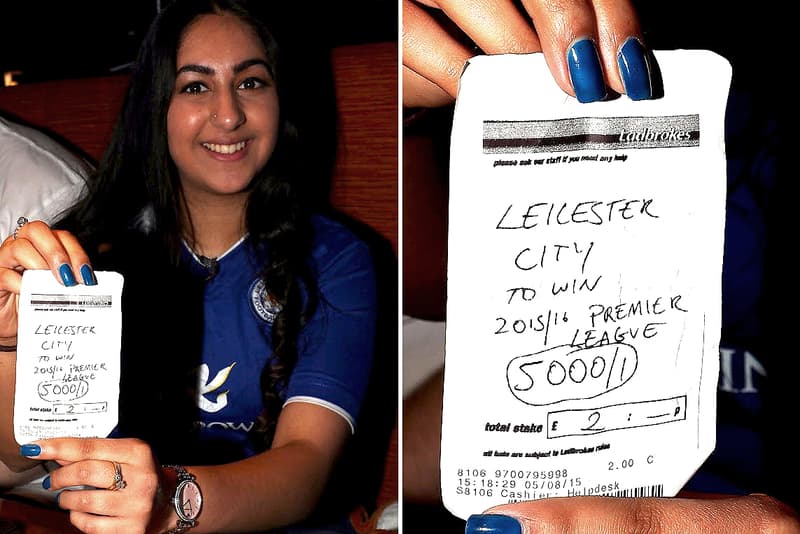 Ladbrokes
please ask our staff if you need any help
LEICESTER
CITY
TO WIN
2015/16 PREMIER
LEAGUE
5000/1
total stake £ 2 : — P
Ladbrokes
please ask our staff if you need any help
LEICESTER
CITY
TO WIN
2015/16 PREMIER
LEAGUE
5000/1
total stake £ 2 : — P
all bets are subject to Ladbrokes rules
2.00 C
8106 9700795998
15:18:29 05/08/15
S8106 Cashier: Helpdesk